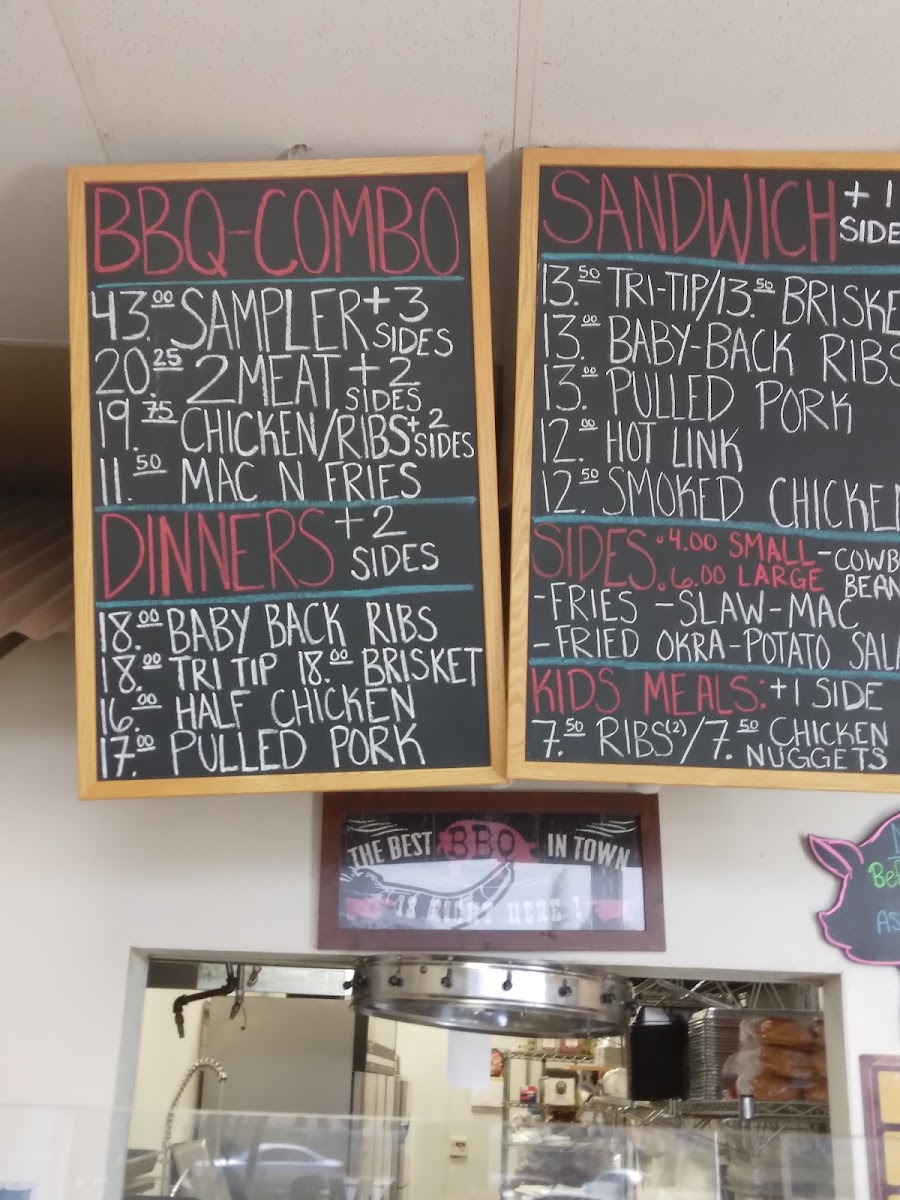 BBQ-COMBO
43.00 SAMPLER +3 SIDES
20.25 2 MEAT +2 SIDES
19.75 CHICKEN/RIBS +2 SIDES
11.50 MAC N FRIES
DINNERS +2 SIDES
18.00 BABY BACK RIBS
18.00 TRI TIP 18.00 BRISKET
16.00 HALF CHICKEN
17.00 PULLED PORK
SANDWICH +1 SIDE
13.50 TRI-TIP/13.50 BRISKE
13.00 BABY-BACK RIBS
13.00 PULLED PORK
12.00 HOT LINK
12.50 SMOKED CHICKEN
SIDES: 4.00 SMALL -COWB
6.00 LARGE BEAN
-FRIES -SLAW-MAC
-FRIED OKRA-POTATO SALA
KIDS MEALS: +1 SIDE
7.50 RIBS(2)/7.50 CHICKEN NUGGETS
THE BEST BBQ IN TOWN
IS RIGHT HERE!
Be
AS